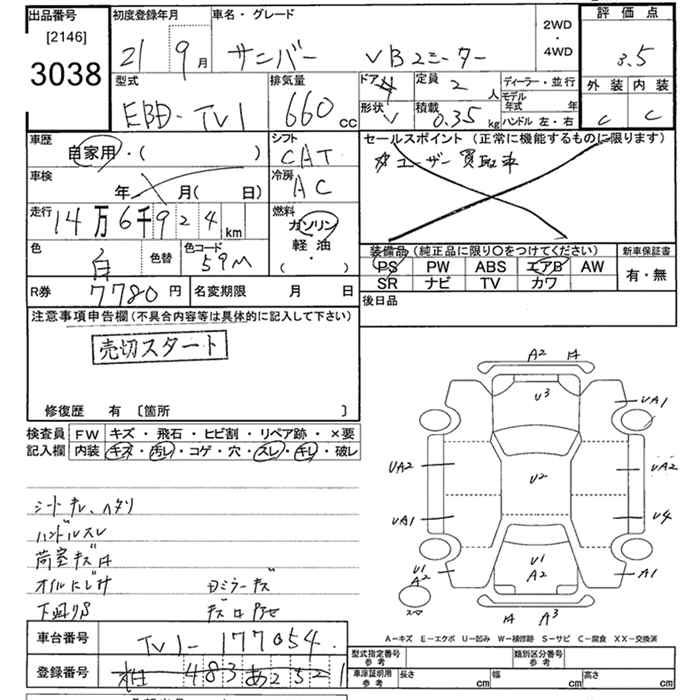 出品番号 初度登録年月 車名・グレード 2WD・4WD 評価点
[2146]
3038 21 9月 サンバー VB2シーター 3.5
型式 排気量 ドア 4 定員 2人 ディーラー・並行 外装 内装
EBD-TV1 660cc 形状 V 積載 0.35kg モデル年式 年 C C
ハンドル 左・右
車歴 シフト セールスポイント(正常に機能するものに限ります)
自家用・( ) CAT ユーザー買取車
車検 年 月( 日) 冷房 AC
走行 14万6千924km 燃料 ガソリン 軽油 ( )
色 白 色替 色コード 59M
装備品(純正品に限り○をつけてください) 新車保証書
PS PW ABS エアB AW 有・無
SR ナビ TV カワ
R券 7780円 名変期限 月 日 後日品
注意事項申告欄(不具合内容等は具体的に記入して下さい)
売切スタート
修復歴 有 〔箇所 〕
検査員 FW キズ・飛石・ヒビ割・リペア跡・×要
記入欄 内装 キズ・汚レ・コゲ・穴・スレ・キレ・破レ
シートキレ、ヘタリ
ハンドルスレ
荷室キズ
オイルにじみ ミラーキズ
下廻りS
A2
U3 UA1
UA2 U2 UA2
UA1 U4
U1 A2 U1 A2 A1
スマ A3
A-キズ E-エクボ U-凹み W-補修跡 S-サビ C-腐食 XX-交換済
車台番号 TV1-177054 型式指定番号 参考 類別区分番号 参考
登録番号 483 あ 252 1 車庫証明用 参考 長さ cm 幅 cm 高さ cm